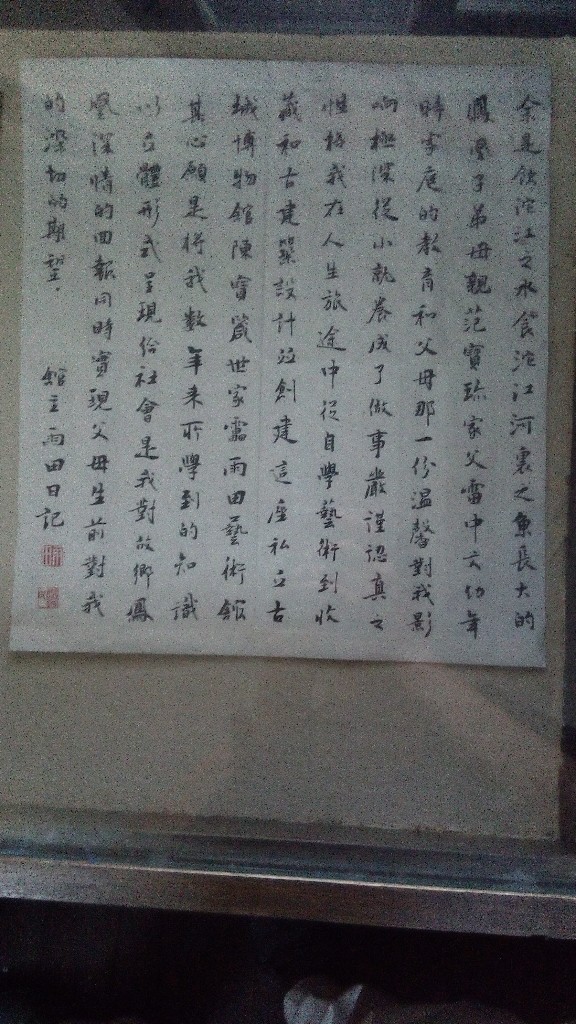 余是飲沱江之水食沱江河裏之魚長大的
鳳凰子弟母親范寶珍家父雷中云幼年
時家庭的教育和父母那一份溫馨對我影
响極深從小就養成了做事嚴謹認真之
性格我在人生旅途中從自學藝術到收
藏和古建築設計並創建這座私立古
城博物館陳寶箴世家靁雨田藝術館
其心願是將我數年來所學到的知識
以立體形式呈現給社會是我對故鄉鳳
凰深情的回報同時實現父母生前對我
的深切的期望.
館主雨田日記